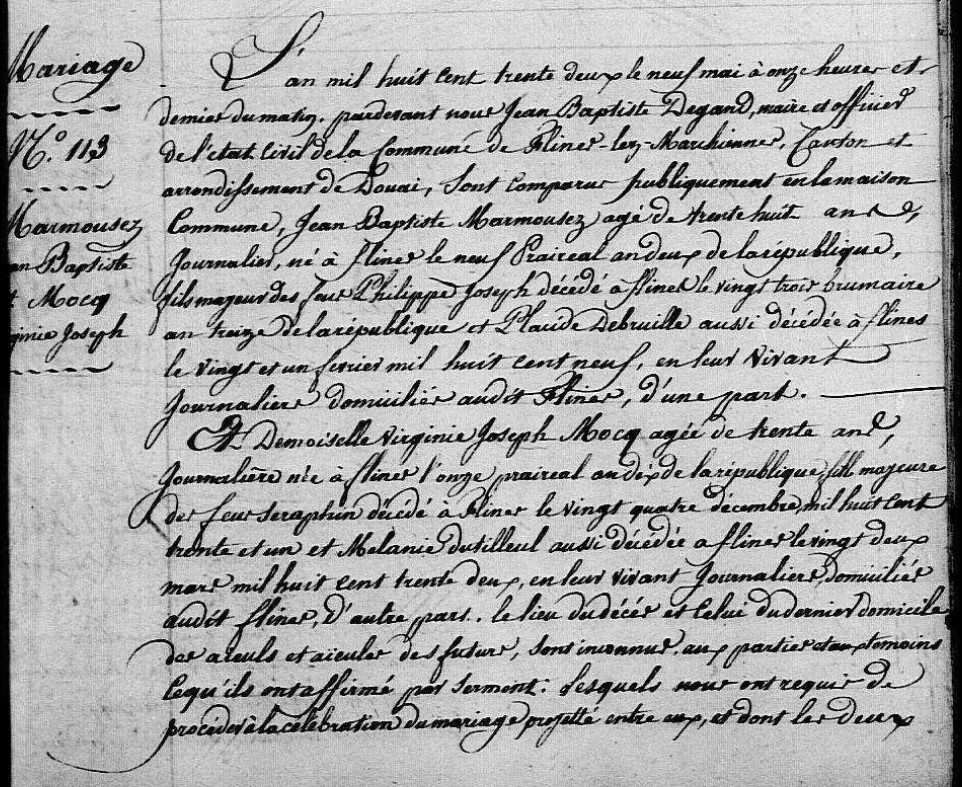 Mariage
N.° 113
Marmousez
an Baptiste
t Mocq
ginie Joseph
L'an mil huit cent trente deux le neuf mai à onze heures et
demies du matin. pardevant nous Jean Baptiste Degand, maire et officier
de l'état Civil de la Commune de Flines-lez-Marchiennes, Canton et
arrondissement de Douai, Sont Comparus publiquement en la maison
Commune, Jean Baptiste Marmousez agé de trente huit ans,
Journalier, né à flines le neuf Prairéal an deux de la république,
fils majeur des feus Philippe Joseph décédé à flines le vingt trois brumaire
an treize de la république et Plaude Debruille aussi décédée à flines
le vingt et un fevrier mil huit cent neuf, en leur vivant
Journaliers domiciliés audit Flines, d'une part.
Et Demoiselle Virginie Joseph Mocq agée de trente ans,
Journalière née à flines l'onze prairéal an dix de la république, fille majeure
des feus Seraphin décédé à Flines le vingt quatre décembre mil huit cent
trente et un et Melanie Dutilleul aussi décédée a flines le vingt deux
mars mil huit cent trente deux, en leur vivant Journaliers, domiciliés
audit flines, D'autre part. le lieu du décès et celui du dernier domicile
des aieuls et aieules des futurs, sont inconnus. aux parties et aux temoins
Ce qu'ils ont affirmé par Serment: Lesquels nous ont requis de
procéder à la célébration du mariage projetté entre eux, et dont les deux